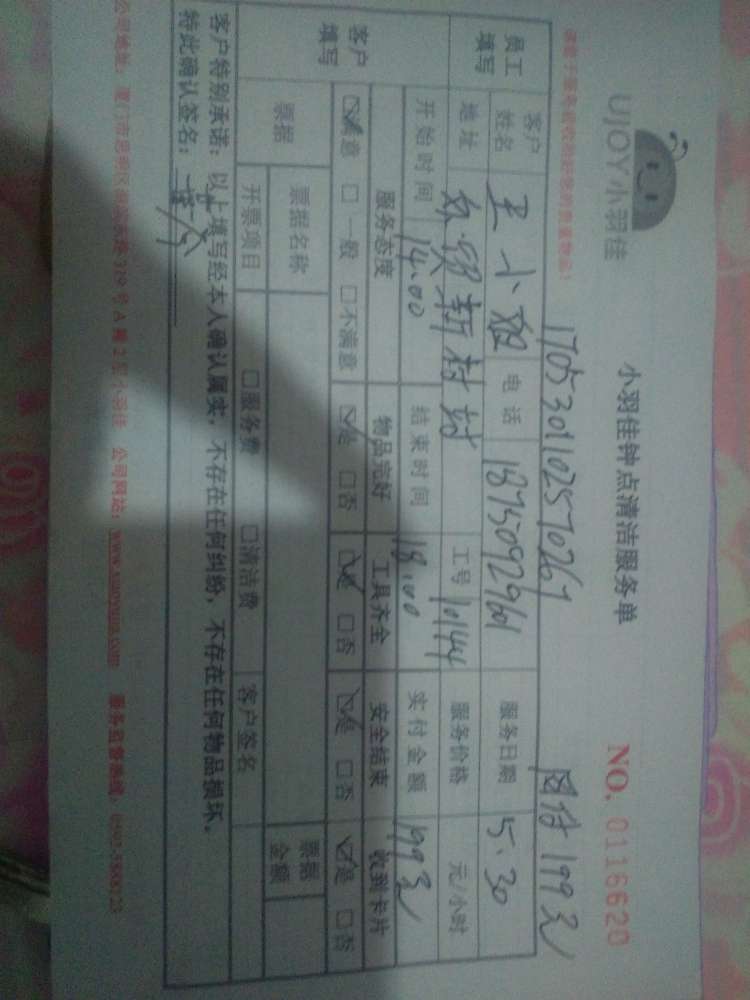 UJOY小羽佳
小羽佳钟点清洁服务单
NO. 0116620
1705301102570267 199元
员工填写 客户姓名 王小姐 电话 18750929601 服务日期 5.30
地址 新村站 工号 10144 服务价格 元/小时
客户填写 开始时间 14:00 结束时间 18:00 实付金额 199元
服务态度 物品完好 工具齐全 安全结束 收到卡片
☑满意 □一般 □不满意 ☑是 □否 ☑是 □否 ☑是 □否 ☑是 □否
票据 票据名称 票据金额
开票项目 □服务费 □清洁费 客户签名
客户特别承诺：以上填写经本人确认属实，不存在任何纠纷，不存在任何物品损坏。
特此确认签名：
公司地址：厦门市思明区 319号A幢2层小羽佳 公司网站：www.xiaoyujia.com 服务监督热线：0592-